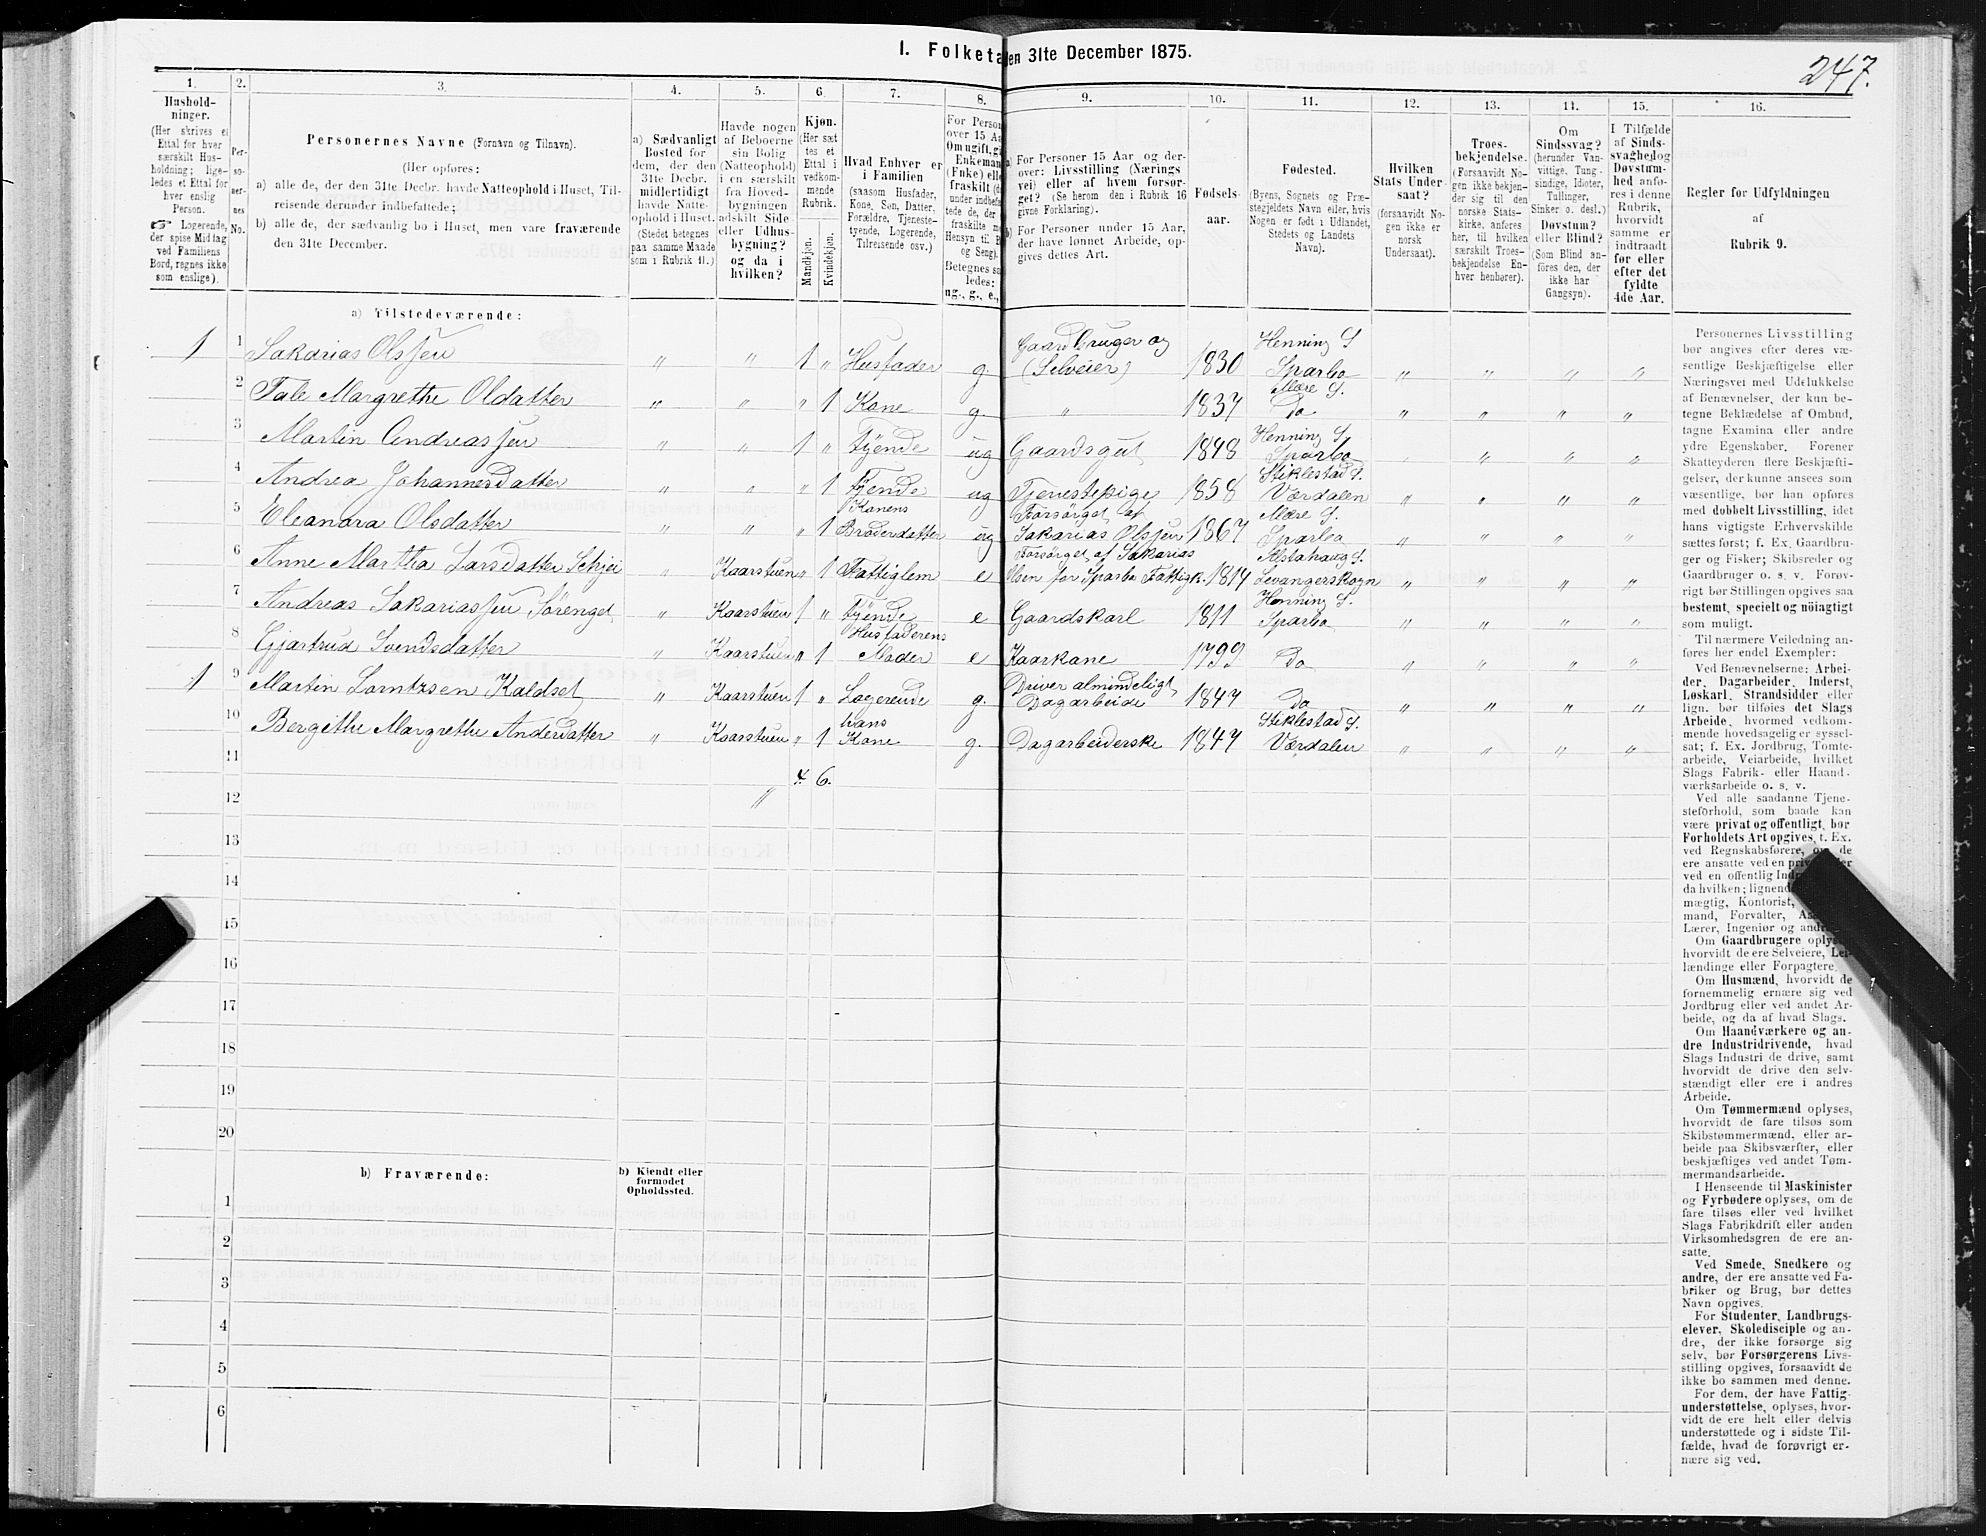 I. Folketa en 31te December 1875.
247.
1.
Hushold-
ninger.
(Her skrives et
Ettal for hver
særskilt Hus-
holdning; lige-
ledes et Ettal for
hver enslig
Person.
☞ Logerende,
der spise Middag
ved Familiens
Bord, regnes ikke
som enslige).
2.
Per-
so-
ner-
nes
No.
3.
Personernes Navne (Fornavn og Tilnavn).
(Her opføres:
a) alle de, der den 31te Decbr. havde Natteophold i Huset, Til-
reisende derunder indbefattede;
b) alle de, der sædvanlig bo i Huset, men vare fraværende
den 31te December.
4.
a) Sædvanligt
Bosted for
dem, der den
31te Decbr.
midlertidigt
havde Natte-
ophold i Huset.
(Stedet betegnes
paa samme Maade
som i Rubrik 11.)
5.
Havde nogen
af Beboerne
sin Bolig
(Natteophold)
i en særskilt
fra Hoved-
bygningen
adskilt Side-
eller Udhus-
bygning?
og da i
hvilken?
6.
Kjøn.
(Her sæt-
tes et
Ettal i
vedkom-
mende
Rubrik.
Mandkjøn.
Kvindekjøn.
7.
Hvad Enhver er
i Familien
(saasom Husfader,
Kone, Søn, Datter,
Forældre, Tjeneste-
tyende, Logerende,
Tilreisende osv.)
8.
For Person
over 15 Aa
Om ugift, gi
Enkeman
(Enke) elle
fraskilt (d
under indbefa
tede de, der
fraskilte m
Hensyn til B
og Seng).
Betegnes sa
ledes:
ug., g., e.,
9.
a) For Personer 15 Aar og der-
over: Livsstilling (Nærings
vei) eller af hvem forsør-
get? (Se herom den i Rubrik 16
givne Forklaring).
b) For Personer under 15 Aar,
der have lønnet Arbeide, op-
gives dettes Art.
10.
Fødsels-
aar.
11.
Fødested.
(Byens, Sognets og Præ-
stegjeldets Navn eller, hvis
Nogen er født i Udlandet,
Stedets og Landets
Navn).
12.
Hvilken
Stats Under-
saat?
(forsaavidt No-
gen ikke er
norsk
Undersaat).
13.
Troes-
bekjendelse.
(Forsaavidt No-
gen ikke bekjen-
der sig til den
norske Stats-
kirke, anføres
her, til hvilken
særskilt Troes-
bekjendelse En-
hver henhører).
14.
Om
Sindssvag?
(herunder Van-
vittige, Tung-
sindige, Idioter,
Tullinger,
Sinker o. desl.)
Døvstum?
eller Blind?
(Som Blind an-
føres den, der
ikke har
Gangsyn).
15.
I Tilfælde
af Sinds-
svaghed og
Døvstum-
hed anfø-
res i denne
Rubrik,
hvorvidt
samme er
indtraadt
før eller
efter det
fyldte
4de Aar.
16.
Regler for Udfyldningen
af
Rubrik 9.
a) Tilstedeværende:
1 1 Sakarias Olssen " " 1 " Husfader g. Gaardbruger og (Selveier) 1830 Henning S. Sparbo " " " "
2 Tale Margrethe Oldatter " " " 1 Kone g. " 1837 Mære S. Do " " " "
3 Martin Andreassen " " 1 " tyende ug Gaardsgut 1848 Henning S. Sparbo " " "
4 Andrea Johannesdatter " " " 1 tyende ug Tjenestepige 1858 Stiklestad S. Værdalen " " " "
5 Eleanora Olsdatter " " " 1 Konens Broderdatter ug Forsørget af Sakarias Olssen 1867 Mære S. Sparbo " " " "
6 Anne Martha Larsdatter Schjei " Kaarstuen " 1 Fattiglem e Forsørget af Sakarias Olsen for Sparbo Fattigk. 1814 Alstahaug S. Levangerskogn " " " "
7 Andreas Sakariassen Sørenget " Kaarstuen 1 " tyende e Gaardskarl 1811 Henning S. Sparbo " " " "
8 Gjartrud Svendsdatter " Kaarstuen " 1 Husfaderens Moder e Kaarkone 1799 Do " " " "
1 9 Martin Lorntzsen Kaldset " Kaarstuen 1 " Logerende g. Driver almindeligt Dagarbeide 1847 Do " " " "
10 Bergithe Margrethe Andersdatter " Kaarstuen " 1 hans Kone g. Dagarbeiderske 1847 Stiklestad S. Værdalen " " " "
11 4. 6.
12 "
13
14
15
16
17
18
19
20
b) Fraværende:
b) Kjendt eller
formodet
Opholdssted.
1
2
3
4
5
6
Personernes Livsstilling
bør angives efter deres væ-
sentlige Beskjæftigelse eller
Næringsvei med Udelukkelse
af Benævnelser, der kun be-
tegne Beklædelse af Ombud,
tagne Examina eller andre
ydre Egenskaber. Forener
Skatteyderen flere Beskjæfti-
gelser, der kunne ansees som
væsentlige, bør han opføres
med dobbelt Livsstilling, idet
hans vigtigste Erhvervskilde
sættes først; f. Ex. Gaardbru-
ger og Fisker; Skibsreder og
Gaardbruger o. s. v. Forøv-
rigt bør Stillingen opgives saa
bestemt, specielt og nøiagtigt
som muligt.
Til nærmere Veiledning an-
føres her endel Exempler:
Ved Benævnelserne: Arbei-
der, Dagarbeider, Inderst,
Løskarl, Strandsidder eller
lign. bør tilføies det Slags
Arbeide, hvormed vedkom-
mende hovedsagelig er syssel-
sat; f. Ex. Jordbrug, Tomte-
arbeide, Veiarbeide, hvilket
Slags Fabrik- eller Haand-
værksarbeide o. s. v.
Ved alle saadanne Tjene-
steforhold, som baade kan
være privat og offentligt, bør
Forholdets Art opgives, t. Ex.
ved Regnskabsførere, om de
ere ansatte ved en priv eller
ved en offentlig Ind
da hvilken; lignend
mægtig, Kontorist,
mand, Forvalter, As
Lærer, Ingeniør og andre.
Om Gaardbrugere oplyses,
hvorvidt de ere Selveiere, Lei-
lændinge eller Forpagtere.
Om Husmænd, hvorvidt de
fornemmelig ernære sig ved
Jordbrug eller ved andet Ar-
beide, og da af hvad Slags.
Om Haandværkere og an-
dre Industridrivende, hvad
Slags Industri de drive, samt
hvorvidt de drive den selv-
stændigt eller ere i andres
Arbeide.
Om Tømmermænd oplyses,
hvorvidt de fare tilsøs som
Skibstømmermænd, eller ar-
beide paa Skibsværfter, eller
beskjæftiges ved andet Tøm-
mermandsarbeide.
I Henseende til Maskinister
og Fyrbødere oplyses, om de
fare tilsøs eller ved hvilket
Slags Fabrikdrift eller anden
Virksomhedsgren de ere an-
satte.
Ved Smede, Snedkere og
andre, der ere ansatte ved Fa-
briker og Brug, bør dettes
Navn opgives.
For Studenter, Landbrugs-
elever, Skoledisciple og an-
dre, der ikke forsørge sig
selv, bør Forsørgerens Livs-
stilling opgives, forsaavidt de
ikke bo sammen med denne.
For dem, der have Fattig-
understøttelse, oplyses, hvor-
vidt de ere helt eller delvis
understøttede og i sidste Til-
fælde, hvad de forøvrigt er-
nære sig ved.